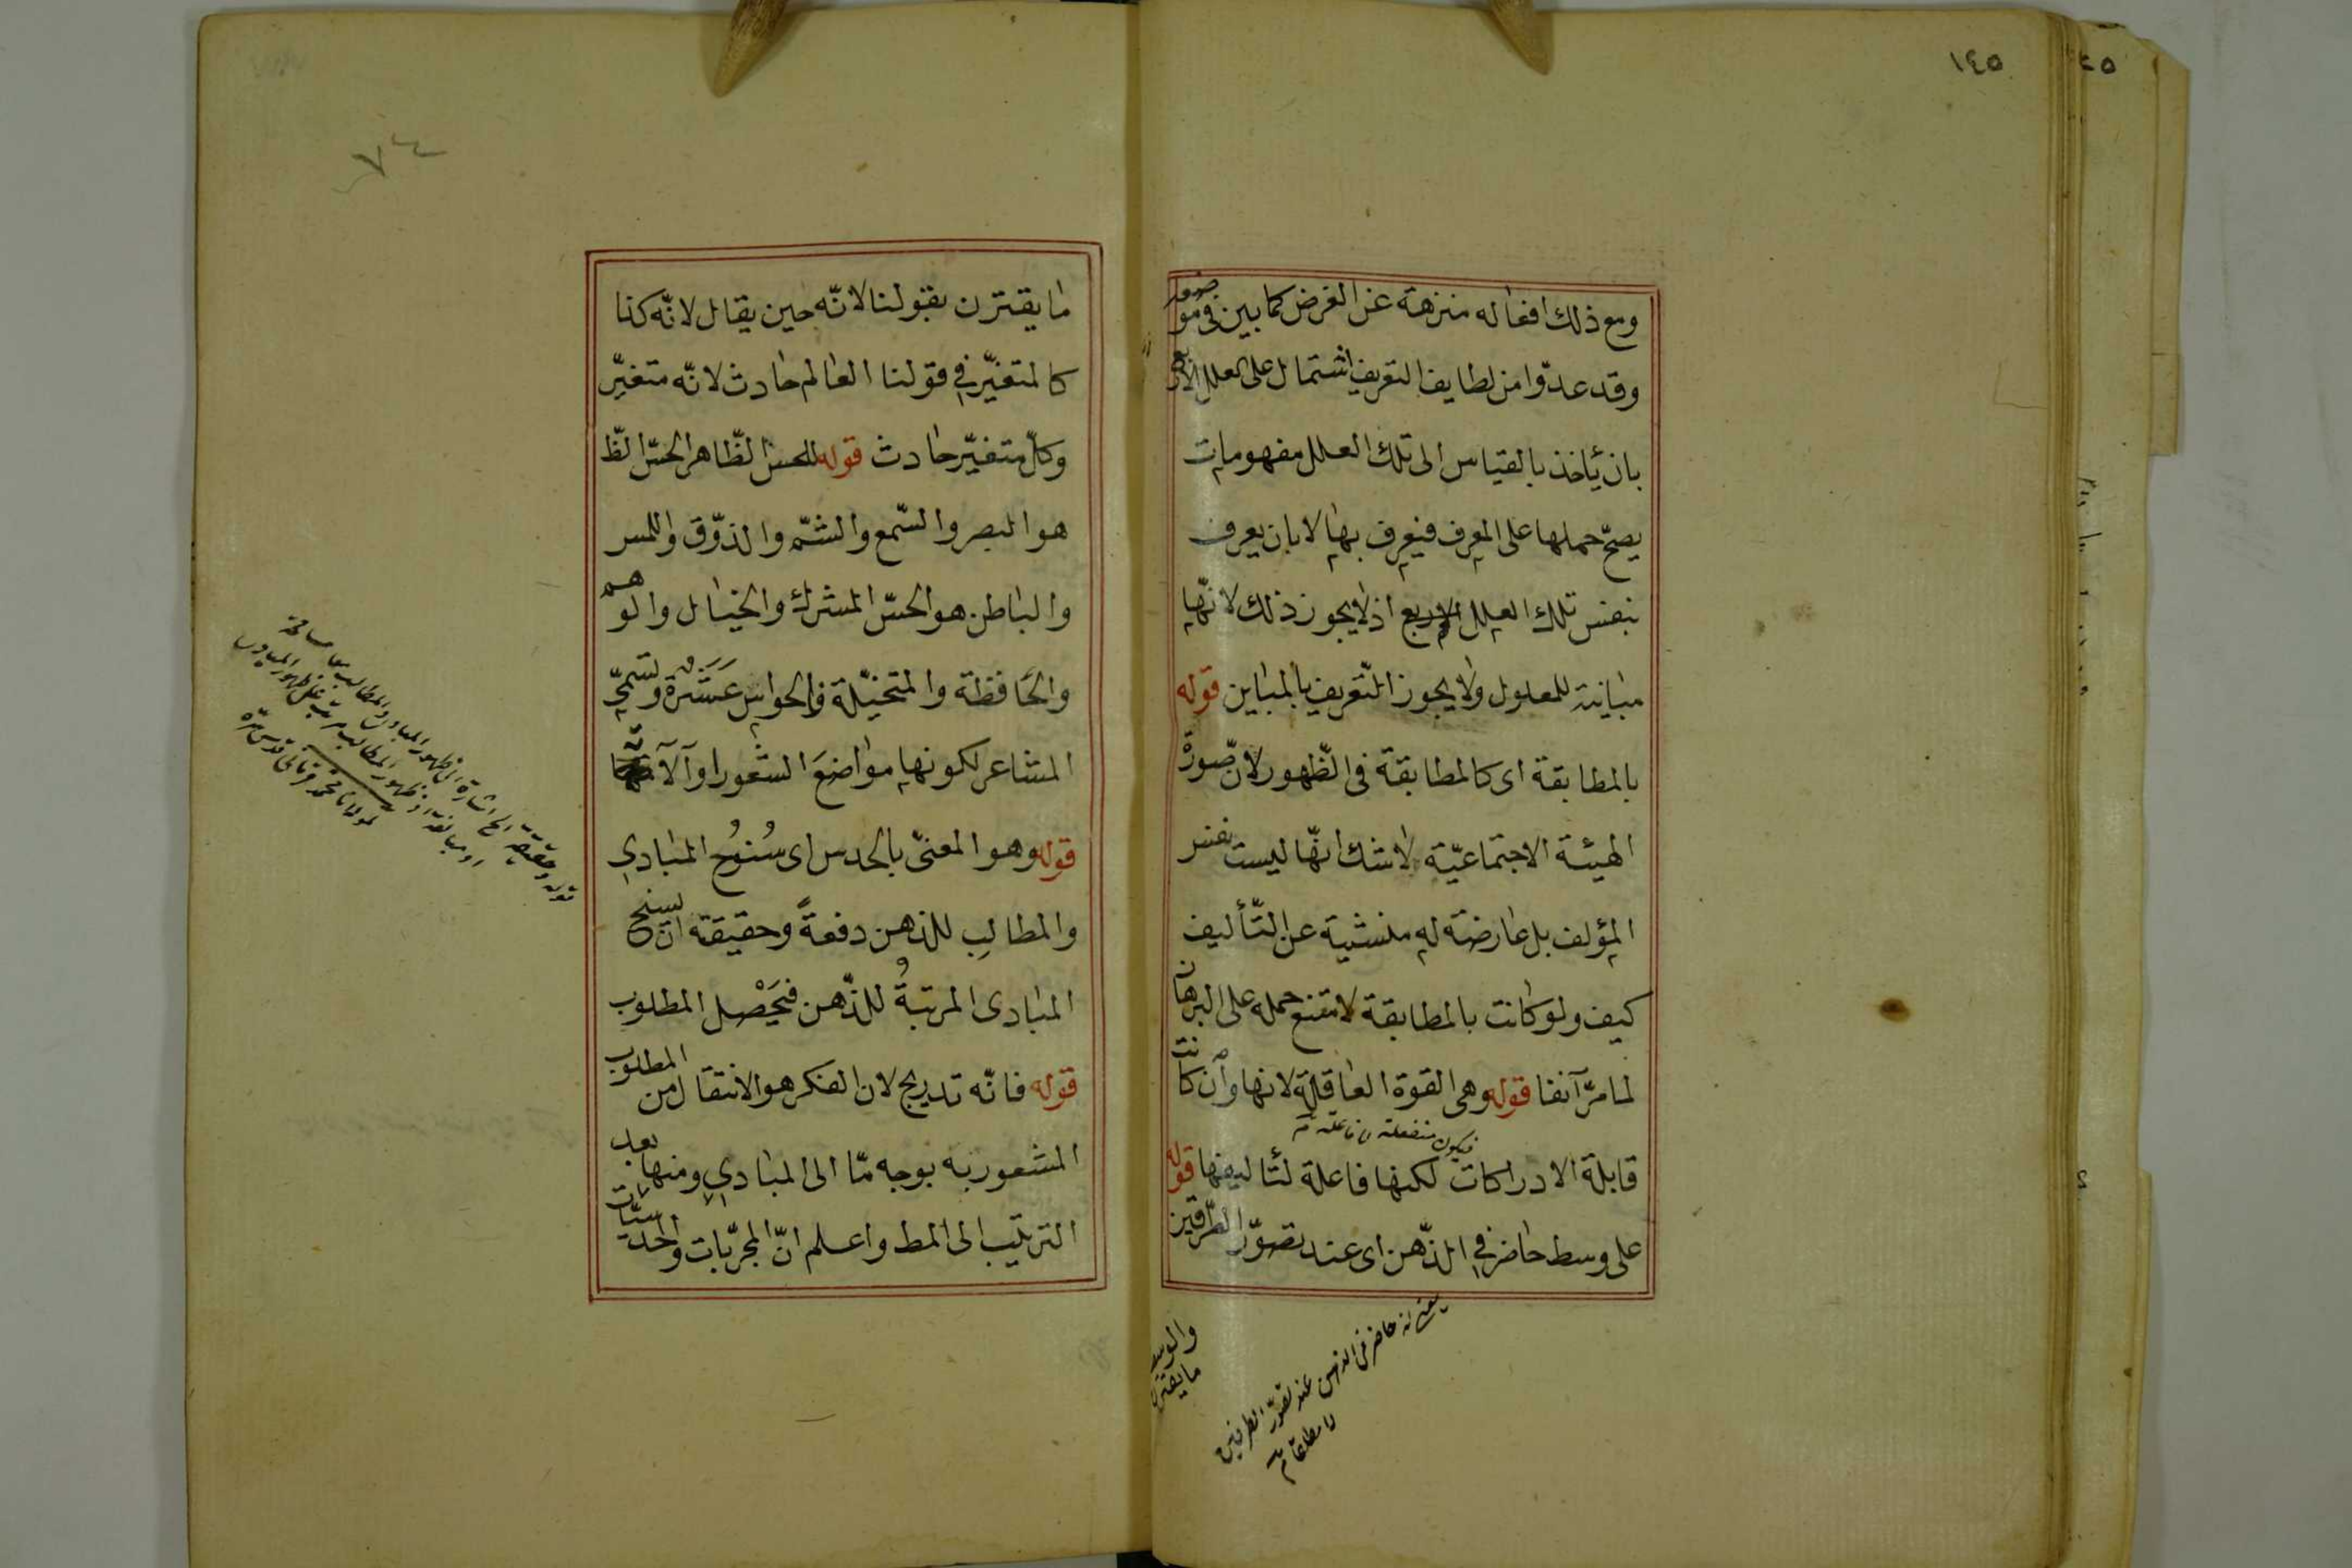 ١٤٥
ومع ذلك افعاله منزهة عن الغرض كما بين فى موضعه
وقد عدّوا من لطايف التعريف اشتمال على العلل الاربع
بان يأخذ بالقياس الى تلك العلل مفهومات
يصحّ حملها على المعرف فيعرف بها لا بان يعرف
بنفس تلك العلل الاربع اذ لا يجوز ذلك لانّها
مباينة للمعلول ولا يجوز التعريف بالمباين قوله
بالمطابقة اى كالمطابقة فى الظّهور لان صّورة
الهيئة الاجتماعيّة لا شك انّها ليست نفس
المؤلف بل عارضة له منشية عن التّأليف
كيف ولو كانت بالمطابقة لامتنع حمله على البرهان
لما مرّ آنفا قوله وهى القوة العاقلة لانها وان كانت
فيكون منفعلة لا فاعلة
قابلة الادراكات لكنها فاعلة لتأليفها قوله
على وسط حاضر فى الذّهن اى عند تصوّر الطّرفين
حاضر فى الذهن عند تصوّر الطرفين
لا مطلقا
والوسط
ما يقترن
٧٤
ما يقترن بقولنا لانّه حين يقال لانّه كذا
كالمتغيّر فى قولنا العالم حادث لانّه متغيّر
وكلّ متغيّر حادث قوله للحسّ الظّاهر الحسّ الظّ
هو البصر والسّمع والشّمّ والذوّق واللمس
والباطن هو الحسّ المشرك والخيال والوهم
والحافظة والمتخيّلة فالحواس عشرة وتسمىّ
المشاعر لكونها مواضع الشعور او آلاتها
قوله وهو المعنىّ بالحدس اى سُنُوُح المبادى
والمطالبِ للذهن دفعةً وحقيقته ان يسنح
المبادى المرتبةُ للذّهن فيَحْصل المطلوب
قوله فانّه تدريج لان الفكر هو الانتقال من المطلوب
المشعور به بوجه مّا الى المبادى ومنها بعد
الترتيب الى المط واعلم انّ المجرّبات والحدسيّات
قوله وحقيقته الخ اشارة الى ظهور المبادى والمطالب معا